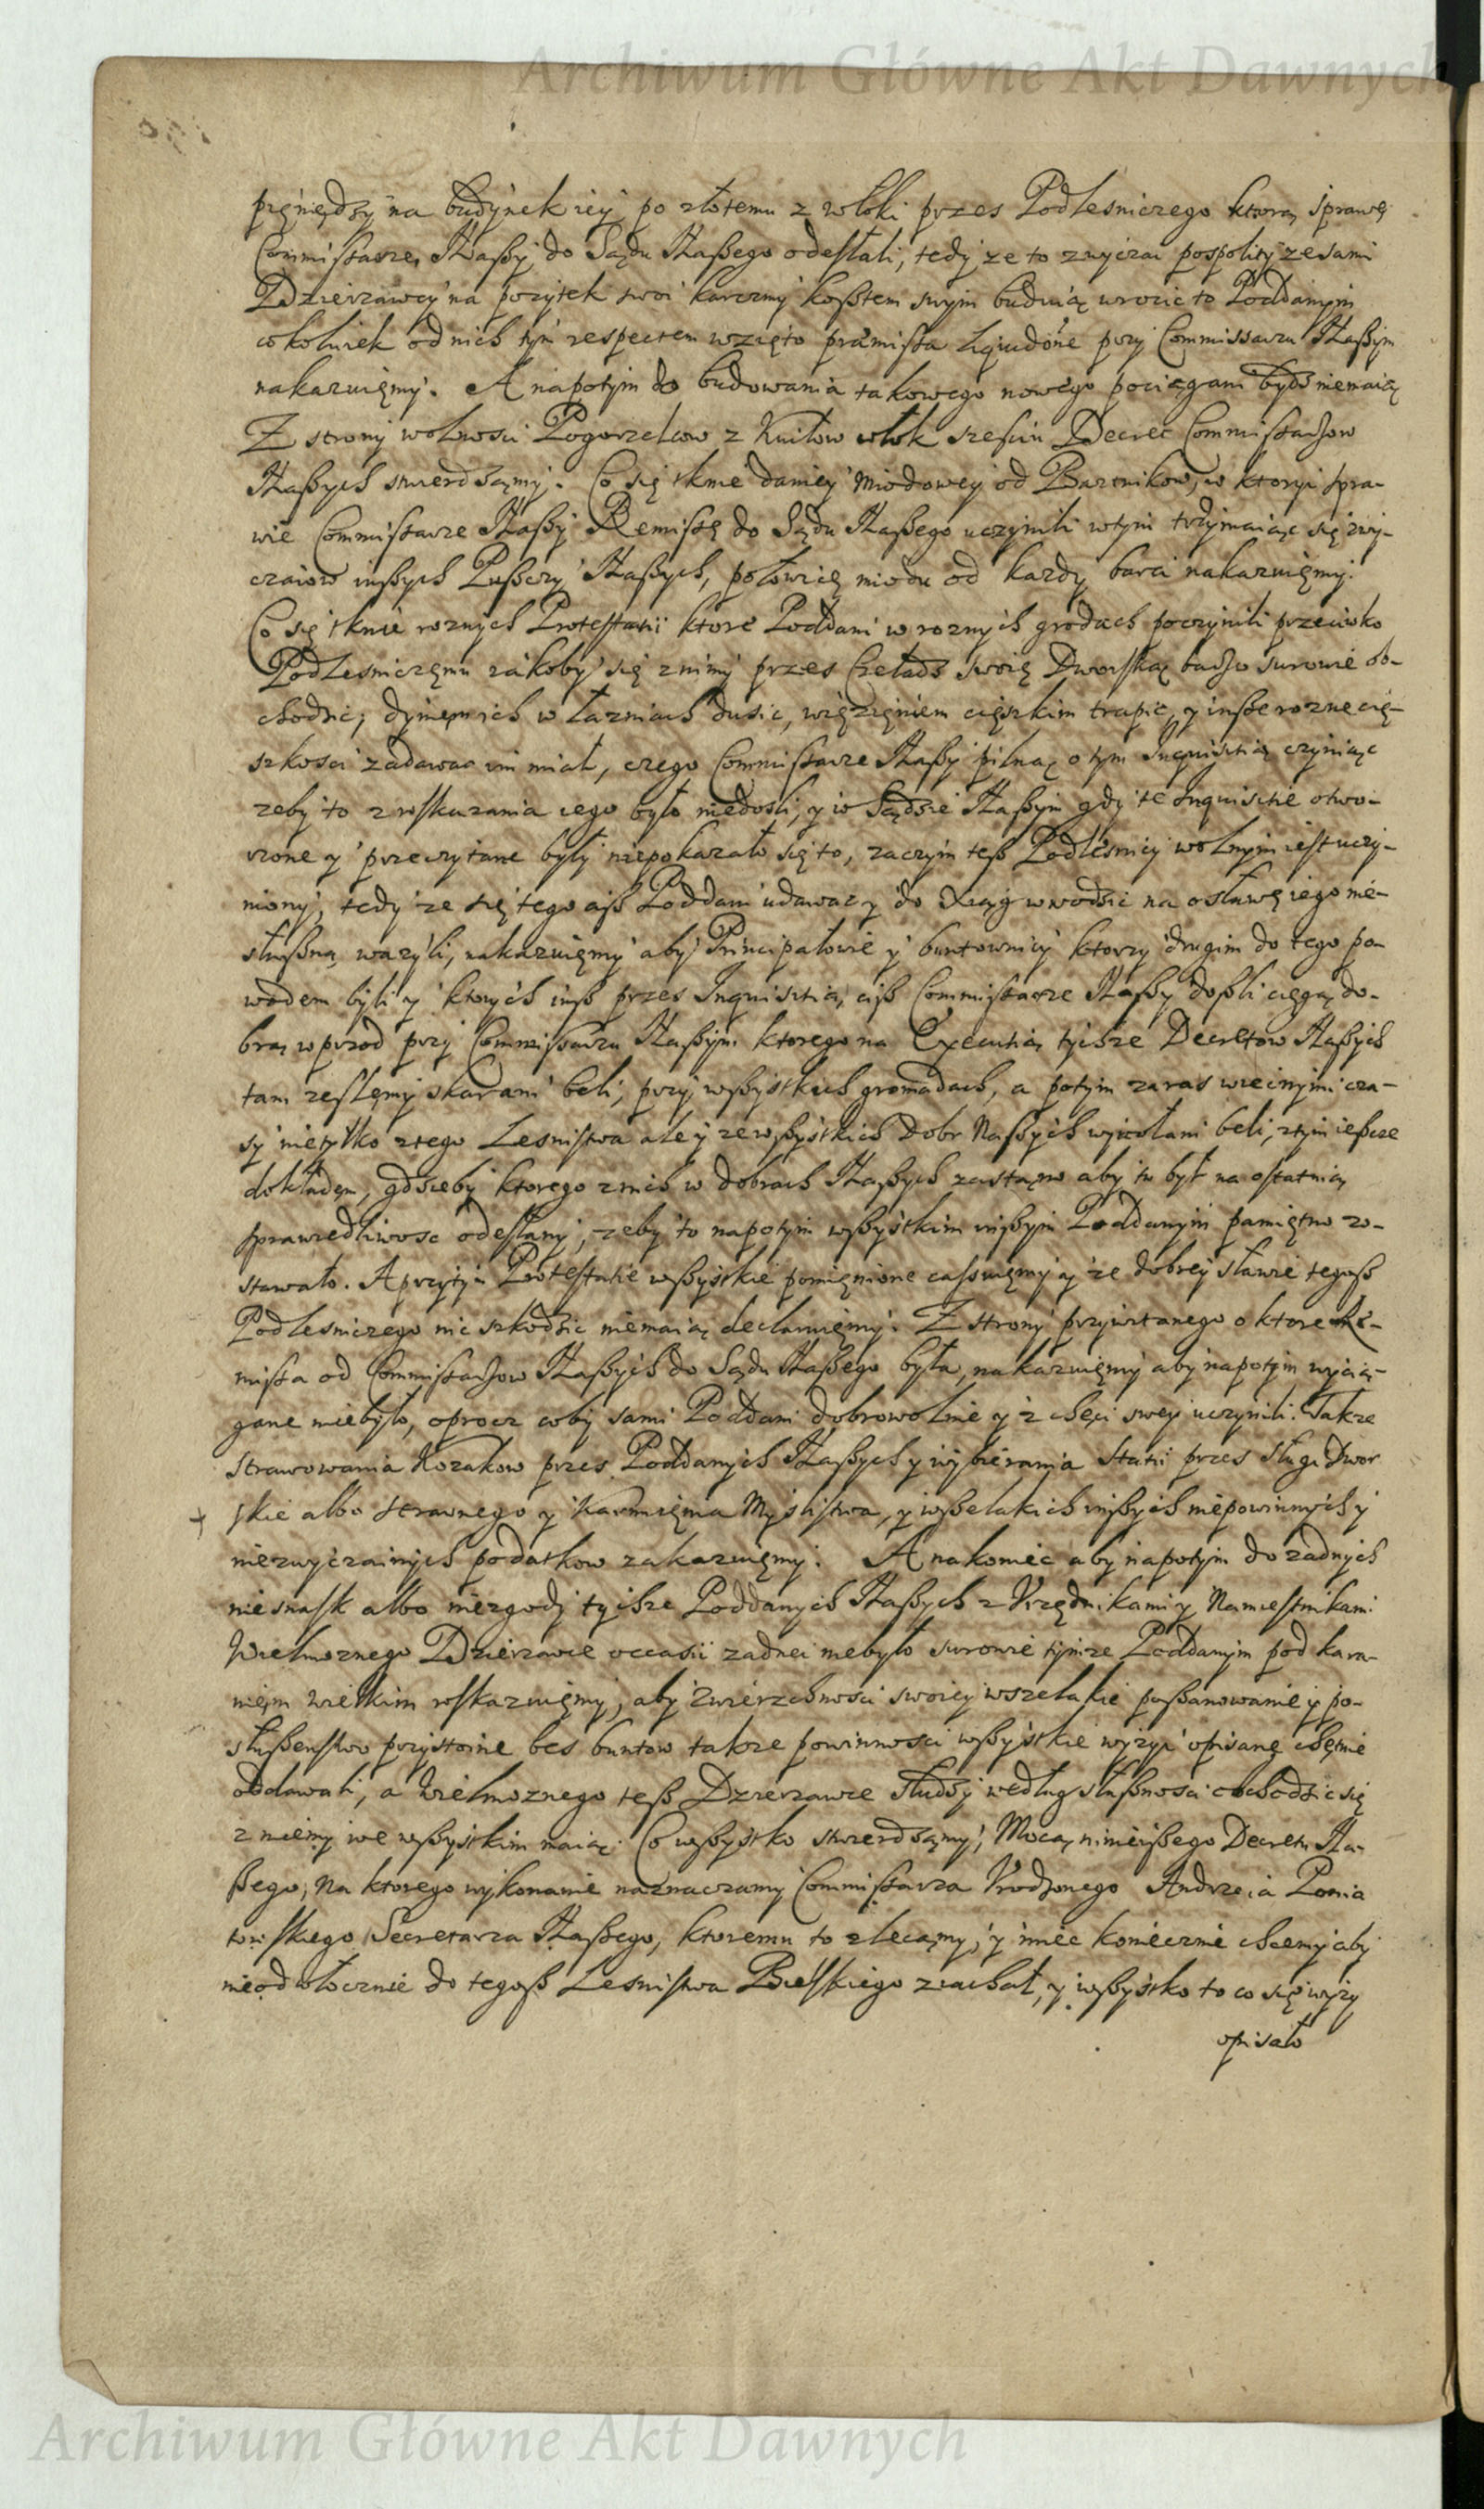 Archiwum Główne Akt Dawnych
pieniędzy na budynek iey po złotemu z włoki przes Podlesniczego ktorą sprawę
Commissarze Naszy do Sądu Naszego odesłali, tedy ze to zwyczai pospolity ze sami
Dzierzawcy na pozytek swoi karczmy kosztem swym buduią wrocic to Poddanym
cokolwiek od nich tym respectem wzięto præmissa liquidõne przy Commissarzu Naszym
nakazuięmy. A napotym do budowania takowego nowego pociągani bydz niemaią
Z strony wolnosci Pogorzelcow z włok szesciu Decret Commissarzow
Naszych stwierdzamy. Co się tknie daniey miodowey od Bartnikow, w ktoryi spra-
wie Commissarze Naszy Remissę do Sądu Naszego uczynili wtym trzymaiąc się zwy-
czaiow inszych Puszczy Naszych, połowicę miodu od kazdy barci nakazuięmy.
Co się tknie roznych Protestatii ktore Poddani w roznych grodach poczynili przeciwko
Podlesniczęmu iakoby się z nimi przes Czeladz swoię Dworską bardzo surowie ob-
chodzic, dymem ich w łazniach dusic, więzięniem cięszkim trapic, y insze rozne cię-
szkosci zadawac im miał, czego Commissarze Naszy pilną o tym Inquisitią czyniąc
zeby to z roskazania iego było niedoszli, y w Sądzie Naszym gdy te Inquisitie otwo-
rzone y przeczytane były niepokazało się to, zaczym tesz Podlesniczy wolnym iest uczy-
niony, tedy ze się tego cisz Poddani udawac y do Xiąg wwodzic na osławę iego nie-
słuszną wazyli, nakazuięmy aby Principałowie y buntownicy ktorzy drugim do tego po-
wodem byli y ktorych insz przes Inquisitią cisz Commissarze Naszy doszli cięgą do-
brą wprzod przy Commissarzu Naszym ktorego na Executią tychze Decretow Naszych
tam zeslęmy skarani beli, przy wszystkich gromadach, a potym zaras wiecznymi cza-
sy nietylko z tego Lesnistwa ale y ze wszystkich Dobr Naszych wywołani beli, z tym ieszcze
dokładem, gdzieby ktorego z nich w dobrach Naszych zastąno aby tu był na ostatnią
sprawiedliwosc odesłany, zeby to napotym wszystkim inszym Poddanym pamiętno zo-
stawało. A przytym Protestatie wszystkie pomięnione cassuięmy y ze dobrey sławie tegosz
Podlesniczego nic szkodzic niemaią declaruięmy. Z strony przywitanego o ktore Re-
missa od Commissarzow Naszych do Sądu Naszego była, nakazuięmy aby napotym wycią-
gane niebyło, oprocz coby sami Poddani dobrowolnie y z chęci swey uczynili. Takze
strawowania Kozakow przes Poddanych Naszych y wybierania Statii przes sługi Dwor
skie albo strawnego y karmięnia Myslistwa, y wszelakich inszych niepowinnych y
niezwyczainych podatkow zakazuięmy. A nakoniec aby napotym do zadnych
niesnask albo niezgody tychze Poddanych Naszych z Urzędnikami y Namiestnikami
Wielmoznego Dzierzawce occasii zadnei niebyło surowie tymze Poddanym pod kara-
nięm wielkim roskazuięmy, aby zwierzchnosci swoiey wszelakie poszanowanie y po-
słuszenstwo przystoine bes buntow takze powinnosci wszystkie wyzyi opisane chętnie
oddawali, a Wielmoznego tesz Dzierzawce słudzy według słusznosci obchodzic się
z niemy we wszystkim maią. Co wszystko stwierdzamy, Mocą ninieiszego Decretu Na-
szego, Na ktorego wykonanie naznaczamy Commissarza Urodzonego Andrzeia Ponia
towskiego Secretarza Naszego, ktoremu to zlecamy, y miec koniecznie chcemy aby
nieodwłocznie do tegosz Lesnistwa Bielskiego ziachał, y wszystko to co się wyzy
opisało
Archiwum Główne Akt Dawnych